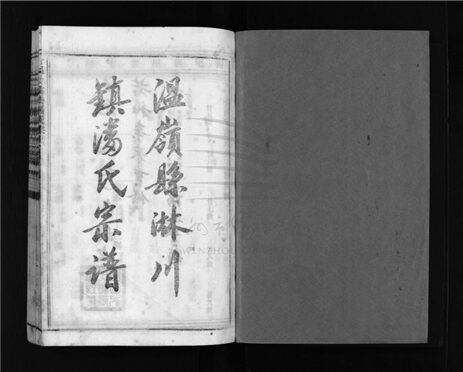 温嶺縣淋川
鎮潘氏宗谱